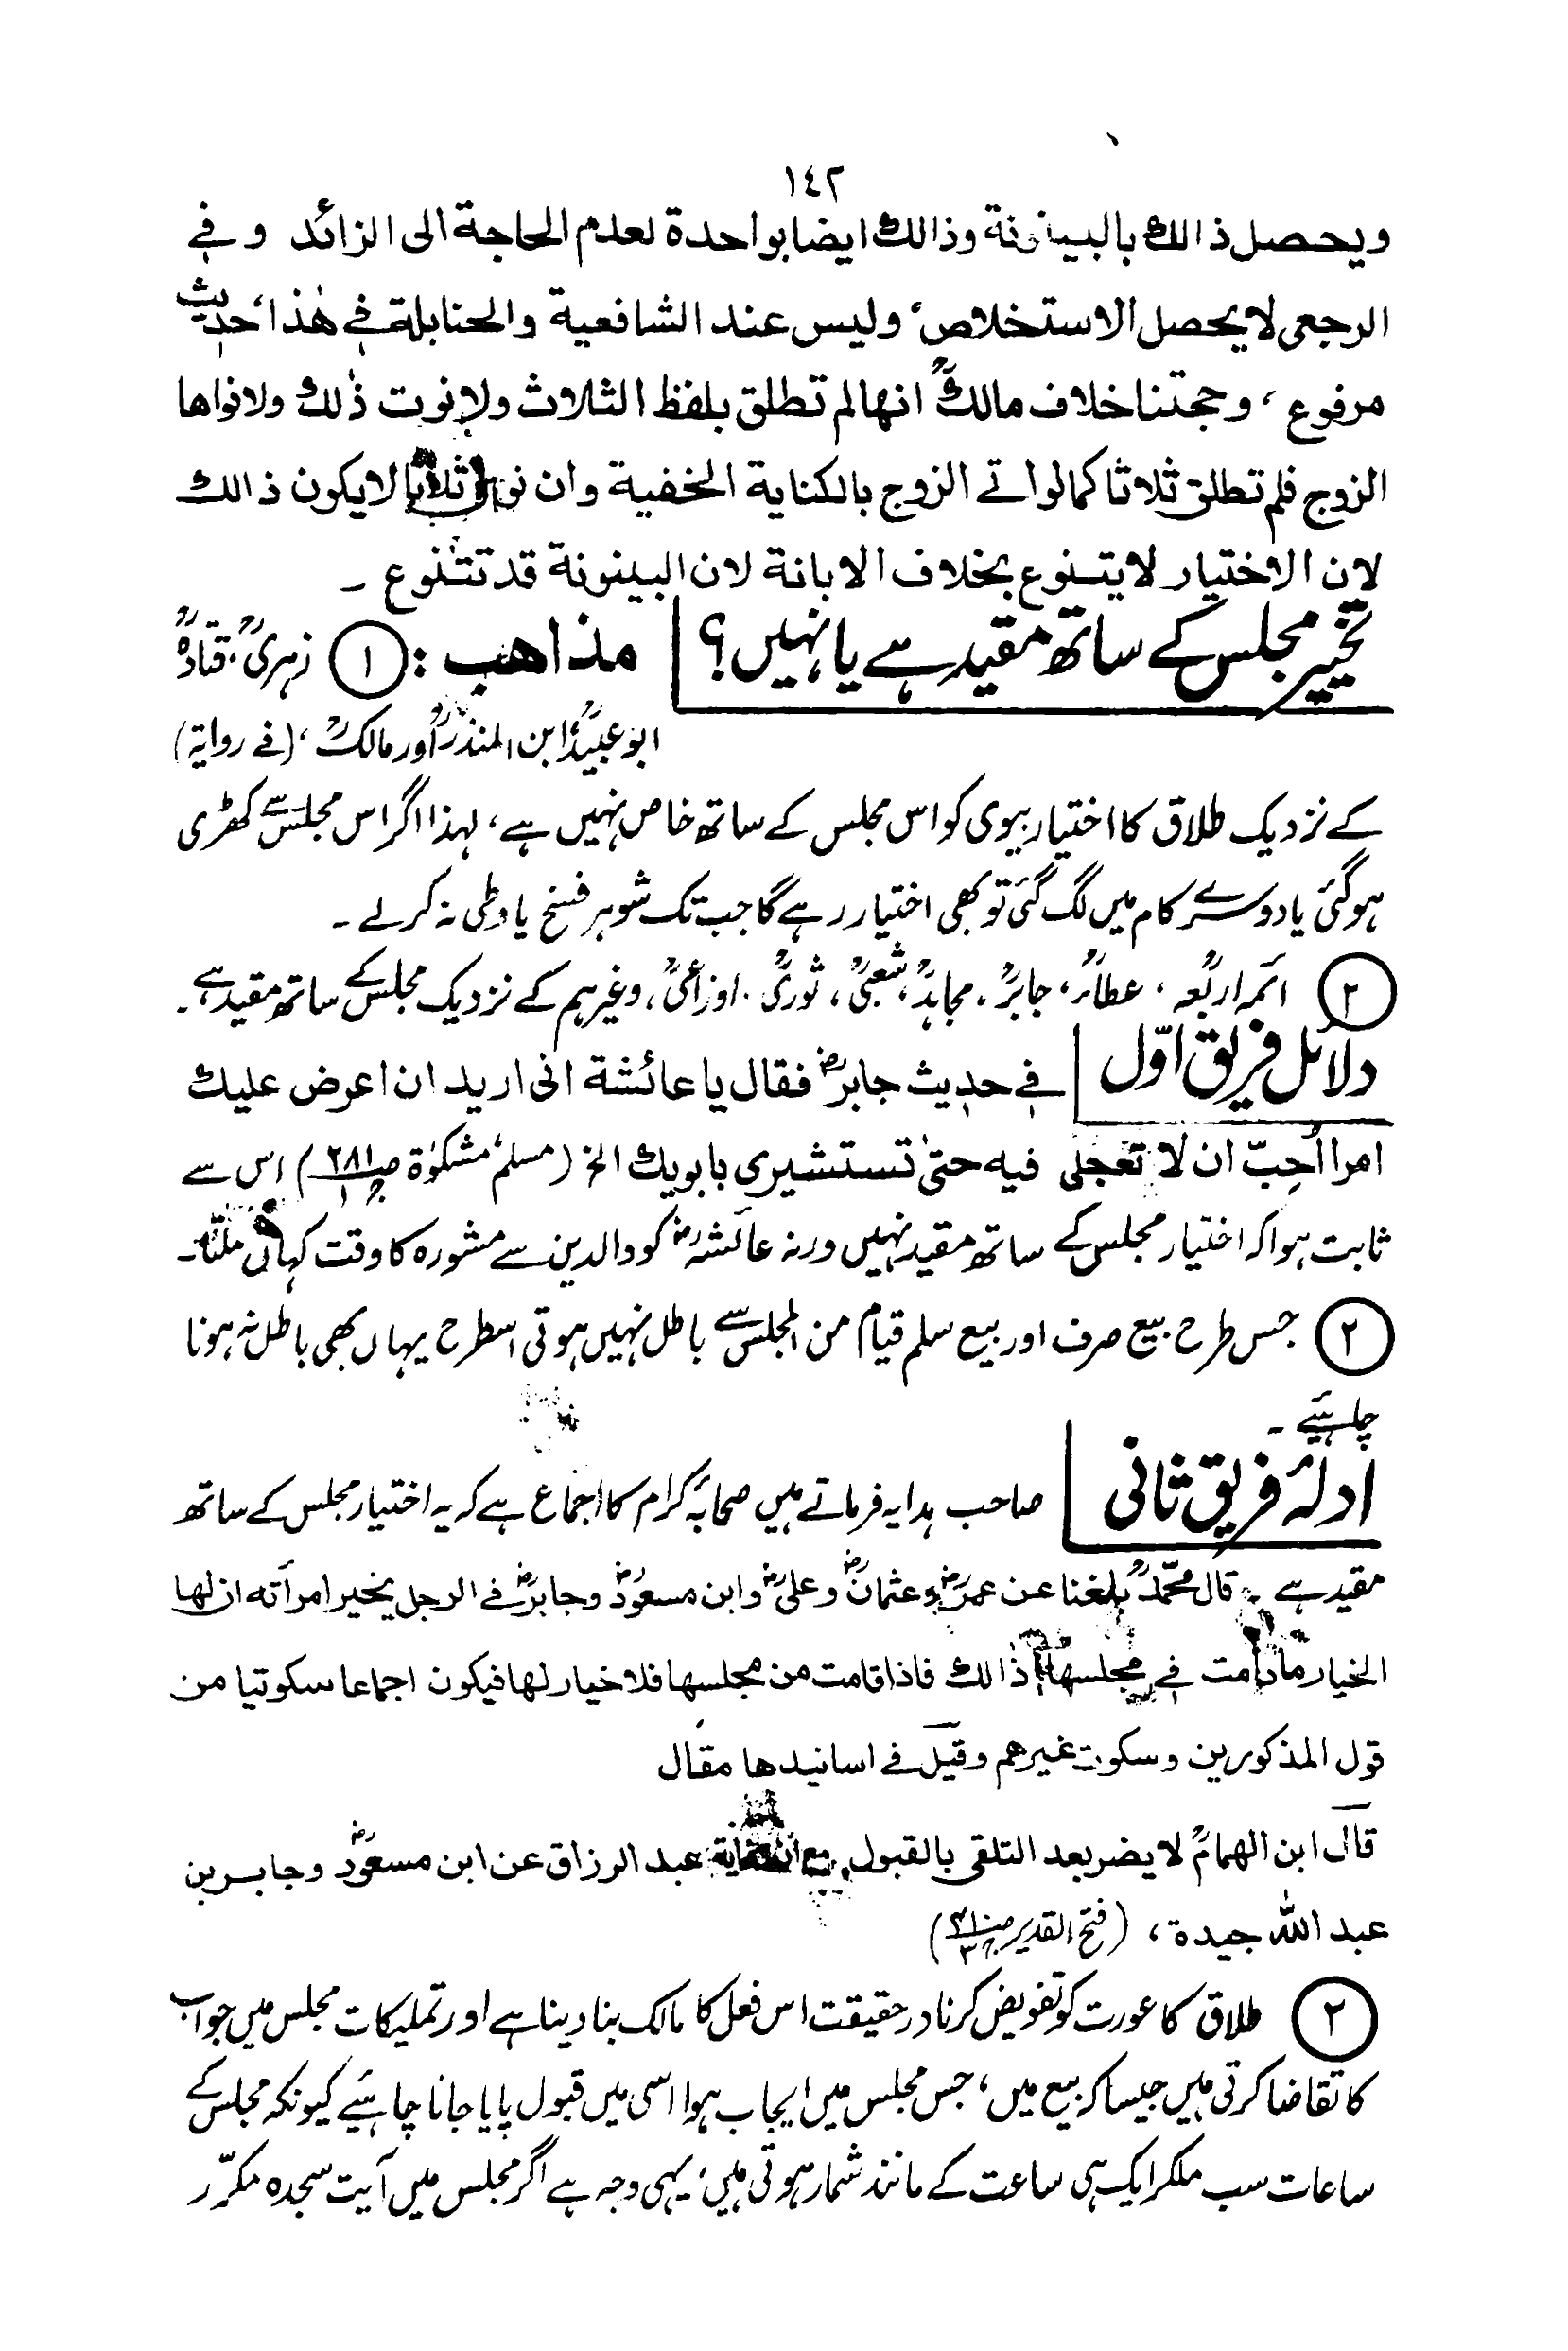 ١٤٢
ويحصل ذالك بالبينونة وذالك ايضا بواحدة لعدم الحاجة الى الزائد وفي
الرجعى لا يحصل الاستخلاص، وليس عند الشافعية والحنابلة في هٰذا، حديث
مرفوع، وحجتنا خلاف مالكؒ انها لم تطلق بلفظ الثلاث ولا نوت ذٰلك ولا نواها
الزوج فلم تطلق ثلاثا كما لو اتى الزوج بالكناية الخفية وان نوى ثلاثا لا يكون ذالك
لان الاختيار لا يتنوع بخلاف الابانة لان البينونة قد تتنوع ۔
تخییر مجلس کے ساتھ مقید ہے یا نہیں؟ مذاهب : ① زہریؒ، قتادہؒ
ابو عبیدؒ ابن المنذرؒ اور مالکؒ، (في رواية)
کے نزدیک طلاق کا اختیار بیوی کو اس مجلس کے ساتھ خاص نہیں ہے، لہذا اگر اس مجلس سے کھڑی
ہوگئی یا دوسرے کام میں لگ گئی تو بھی اختیار رہے گا جب تک شوہر فسخ یا وطی نہ کرلے ۔
② ائمہ اربعہؒ، عطاءؒ، جابرؒ، مجاہدؒ، شعبیؒ، ثوریؒ، اوزاعیؒ، وغیرہم کے نزدیک مجلس کے ساتھ مقید ہے ۔
دلائل فریق اوّل في حديث جابرؓ فقال يا عائشة انى اريد ان اعرض عليك
امرا اُحِبّ ان لا تعجلى فيه حتىٰ تستشيرى بابويك الخ (مسلم، مشكوٰة ص٢٨١ ج١) اس سے
ثابت ہوا کہ اختیار مجلس کے ساتھ مقید نہیں ورنہ عائشہؓ کو والدین سے مشورہ کا وقت کہاں ملتا ۔
② جس طرح بیع صرف اور بیع سلم قیام من المجلس سے باطل نہیں ہوتی اسطرح یہاں بھی باطل نہ ہونا
چاہیئے ۔
ادلۂ فریق ثانی صاحب ہدایہ فرماتے ہیں صحابۂ کرام کا اجماع ہے کہ یہ اختیار مجلس کے ساتھ
مقید ہے ۔ قال محمّدؒ بلغنا عن عمرؓ و عثمانؓ و علىؓ و ابن مسعودؓ و جابرؓ في الرجل يخير امرأته ان لها
الخيار ما دامت في مجلسها ذالك فاذا قامت من مجلسها فلا خيار لها فيكون اجماعا سكوتيا من
قول المذكورين وسكوت غيرهم وقيل في اسانيدها مقال
قال ابن الهمامؒ لا يضر بعد التلقى بالقبول مع ان عبد الرزاق عن ابن مسعودؓ وجابر بن
عبد اللّٰه جيدة، (فتح القدير ج٣)
② طلاق کا عورت کو تفویض کرنا در حقیقت اس فعل کا مالک بنا دینا ہے اور تملیکات مجلس میں جواب
کا تقاضا کرتی ہیں جیسا کہ بیع میں، جس مجلس میں ایجاب ہوا اسی میں قبول پایا جانا چاہئیے کیونکہ مجلس کے
ساعات سب ملکر ایک ہی ساعت کے مانند شمار ہوتی ہیں، یہی وجہ ہے اگر مجلس میں آیت سجدہ مکرّر